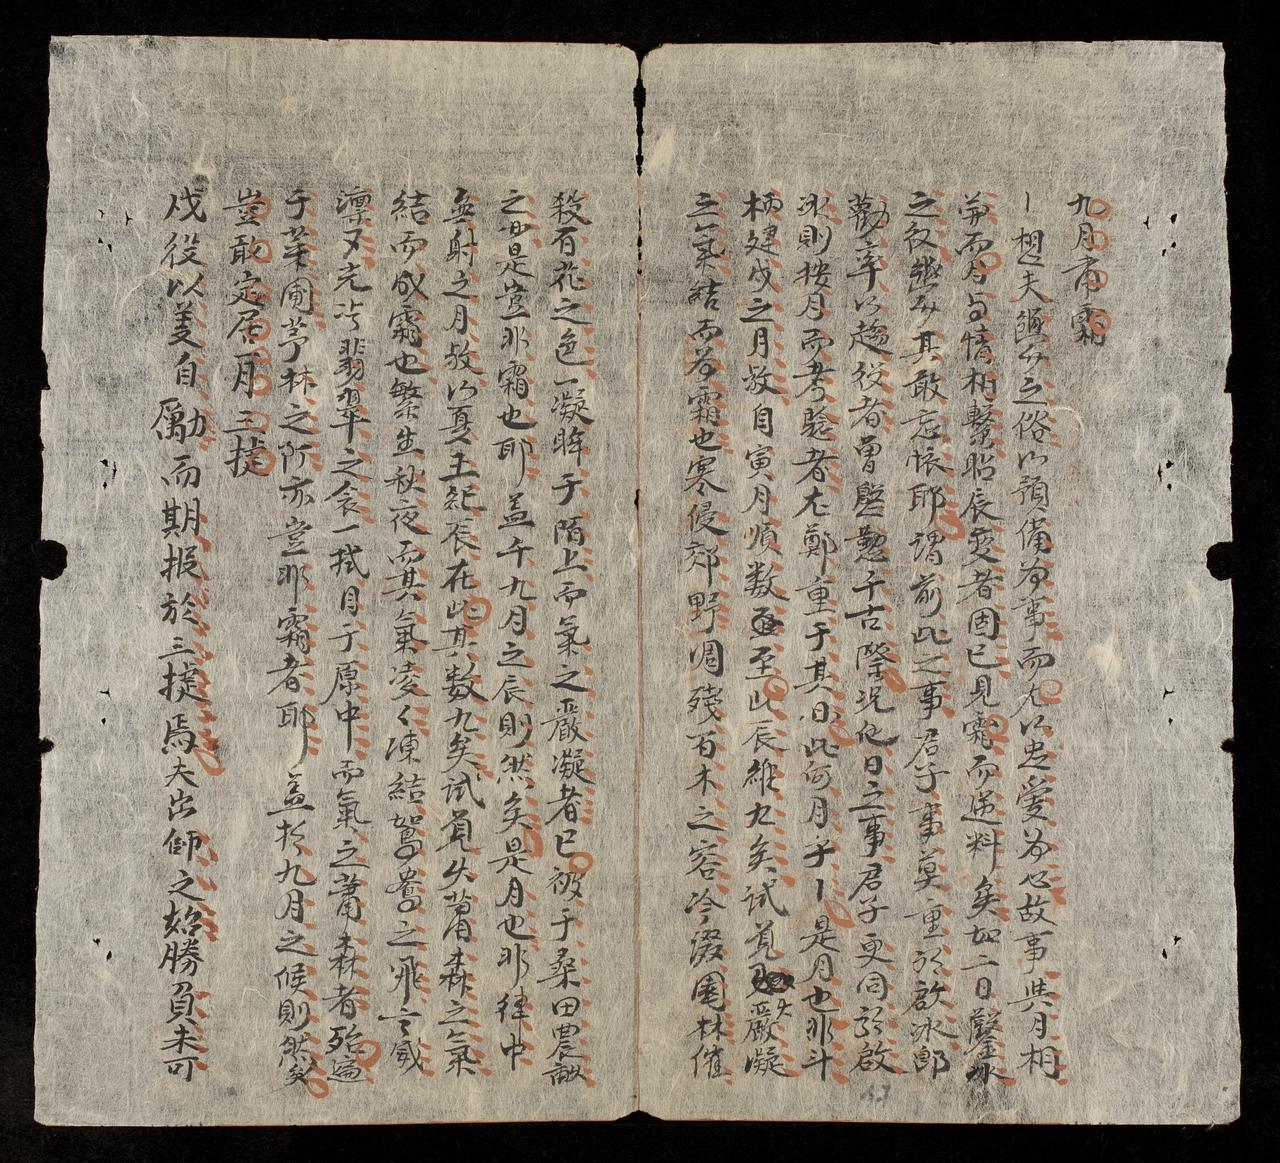 九月肅霜
丨想夫豳公之俗以預備為事而尤以忠愛為心故事與月相
第而君與情相繫昭辰爰者固已見霜而逆料矣如二日鑿冰
之役豳公其敢忘懷耶謂前此之事君子事莫重於啟冰郎
勸辛以趨役者曾慇懃千古際況他日之事君子更同於啟
冰則按月而考驗者尤鄭重于其日此何月乎丨是月也非斗
柄建戌之月故自寅月順数至此辰維九矣試覓夫嚴凝
之氣結而為霜也寒侵郊野凋殘百木之容冷緻園林催
殺百花之色一凝眸于陌上而氣之嚴凝者已被于桑田農畝
之世是豈非霜也耶盖于九月之辰則然矣是月也非律中
無射之月故以夏王紀辰在此其数九矣試覓夫肅森之氣
結而成霜也繁生秋夜而其氣凌々凍結鴛鴦之飛言感
凜又完皆翡翠之衾一拭目于原中而氣之肅森者殆遍
于葉圃芋林之所亦豈非霜者耶盖於九月之候則然矣
豈敢定居一月三捷
戍役以美自勵而期报於三捷焉夫出師之始勝負未可